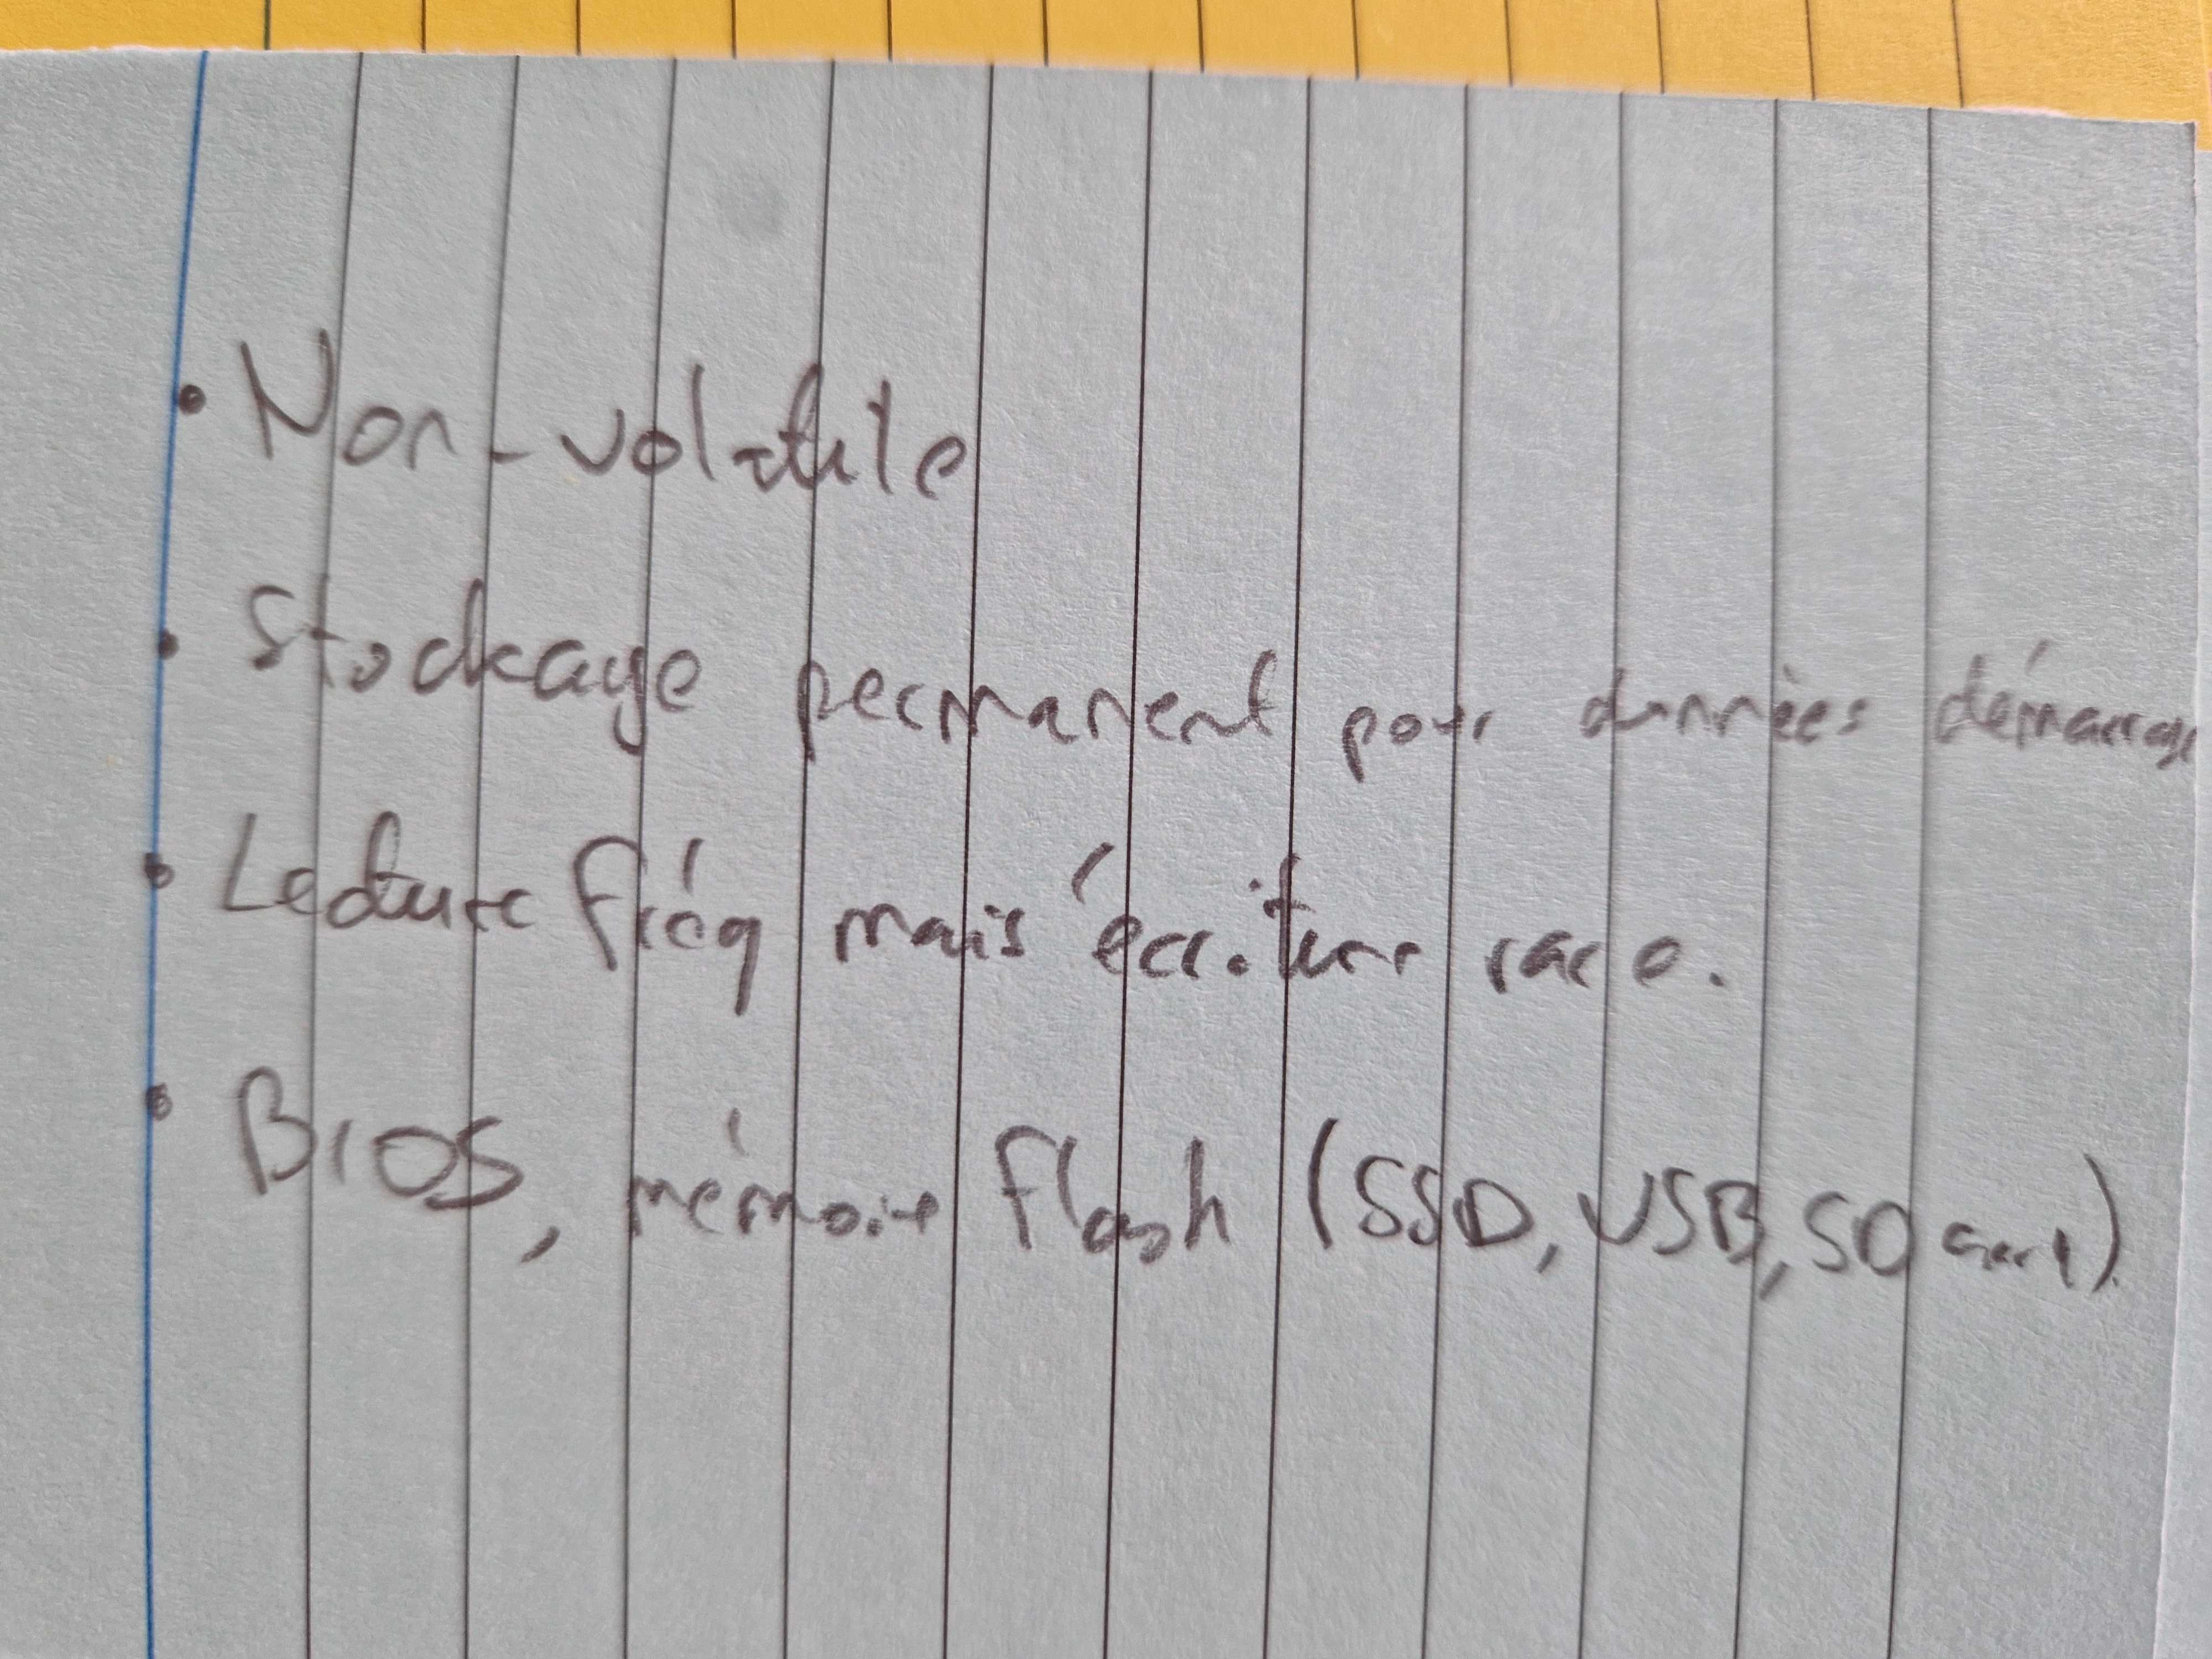 • Non-volatile
• Stockage permanent pour données démarrage
• Lecture fréq mais écriture rare.
• BIOS, mémoire flash (SSD, USB, SD card)